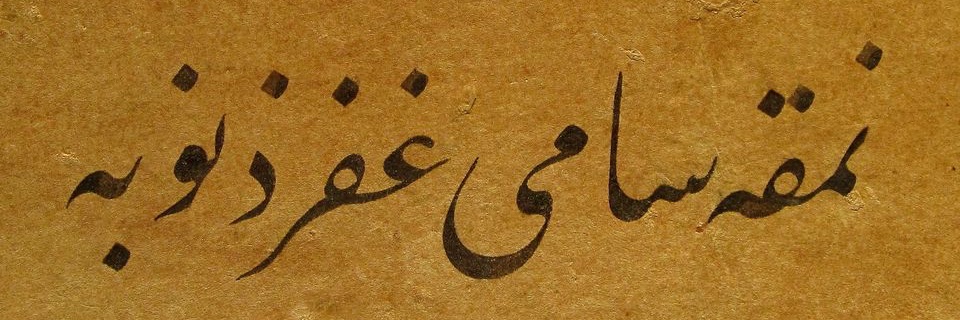 نمقه سامی غفر ذنوبه